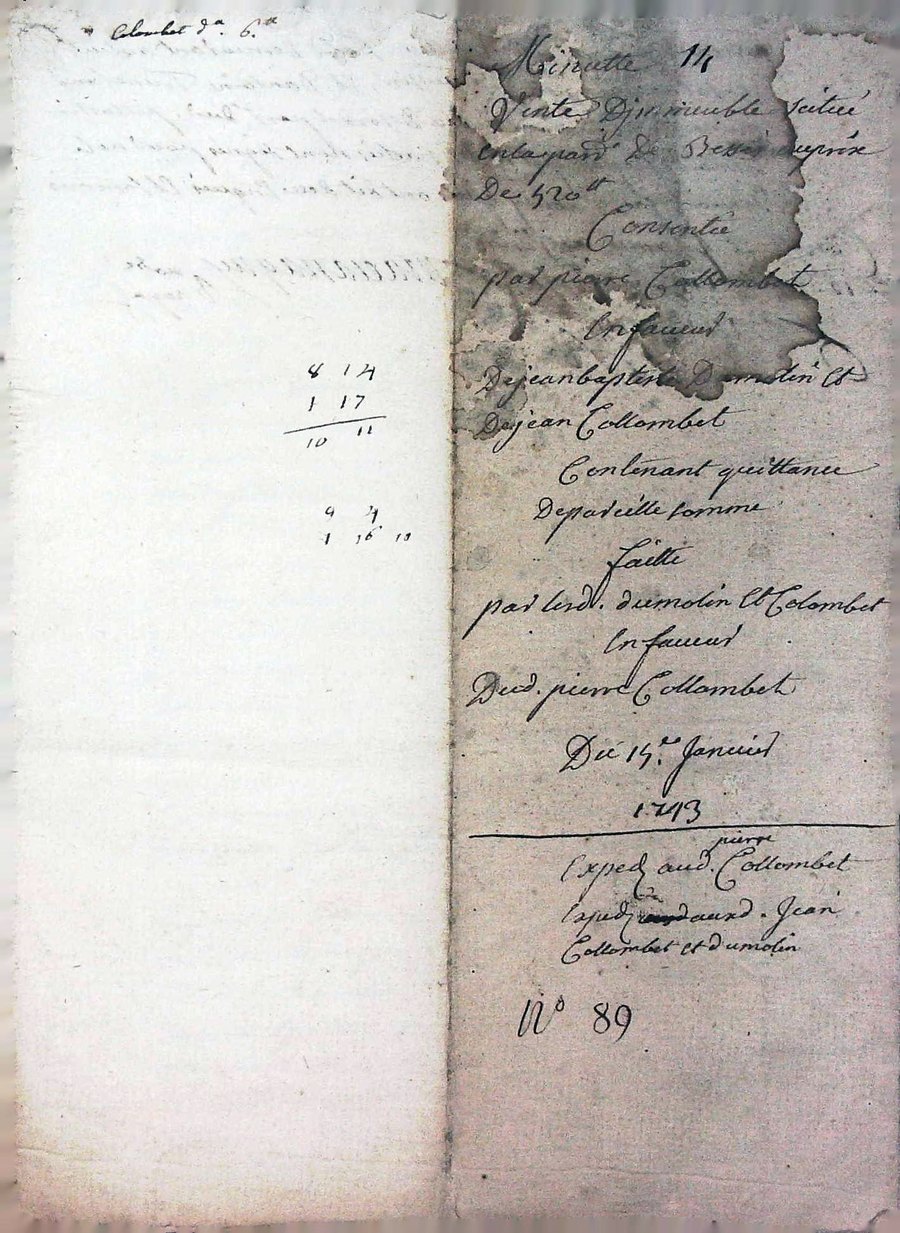 Colombet da. 6.tt
8 14
1 17
10 11
9 4
1 16 10
Minutte 14
Vente Djmmeuble scitué
enlaparr De Bessé auprix
De 520tt
Consentie
par pierre Collombet
En faueur
Dejeanbaptiste Dumolin Et
Dejean Collombet
Contenant quittance
Depareille somme
faitte
par lesd. dumolin Et Colombet
En faueur
Dud. pierre Collombet
Du 15.e Januier
1743
Exped aud. pierre Collombet
Exped auxd. Jean
Collombet et dumolin
No 89